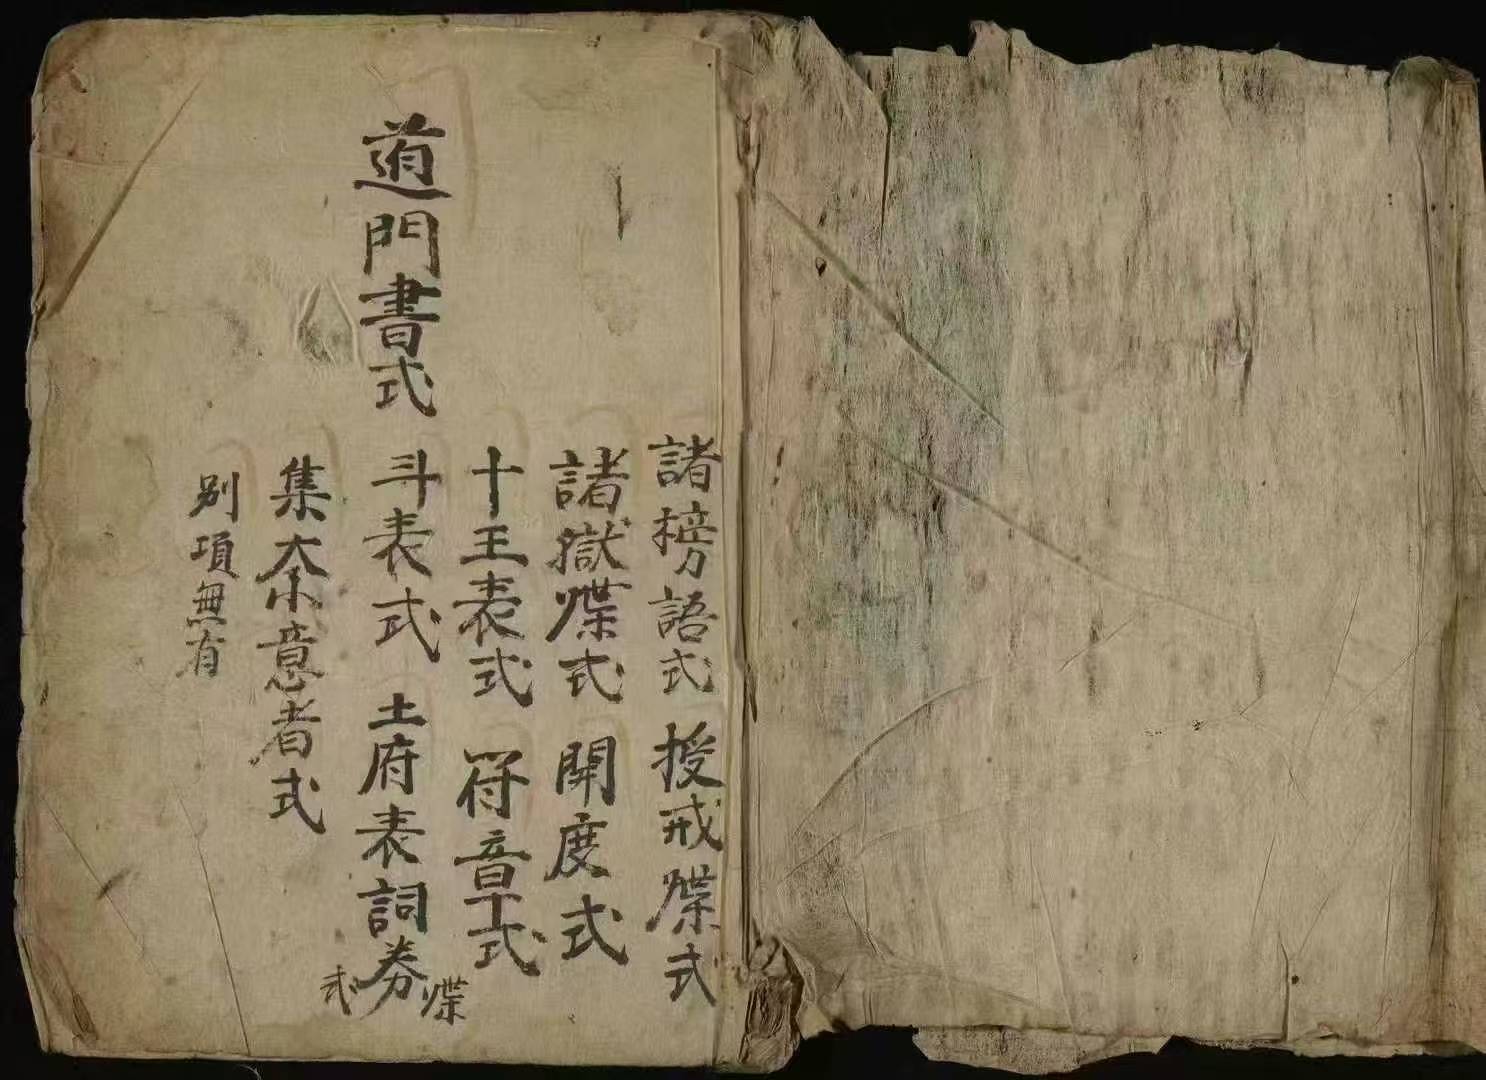 諸榜語式 授戒牒式
諸獄牒式 開度式
十王表式 符章式
道門書式 斗表式 土府表詞券牒式
集奈意者式
別項無有